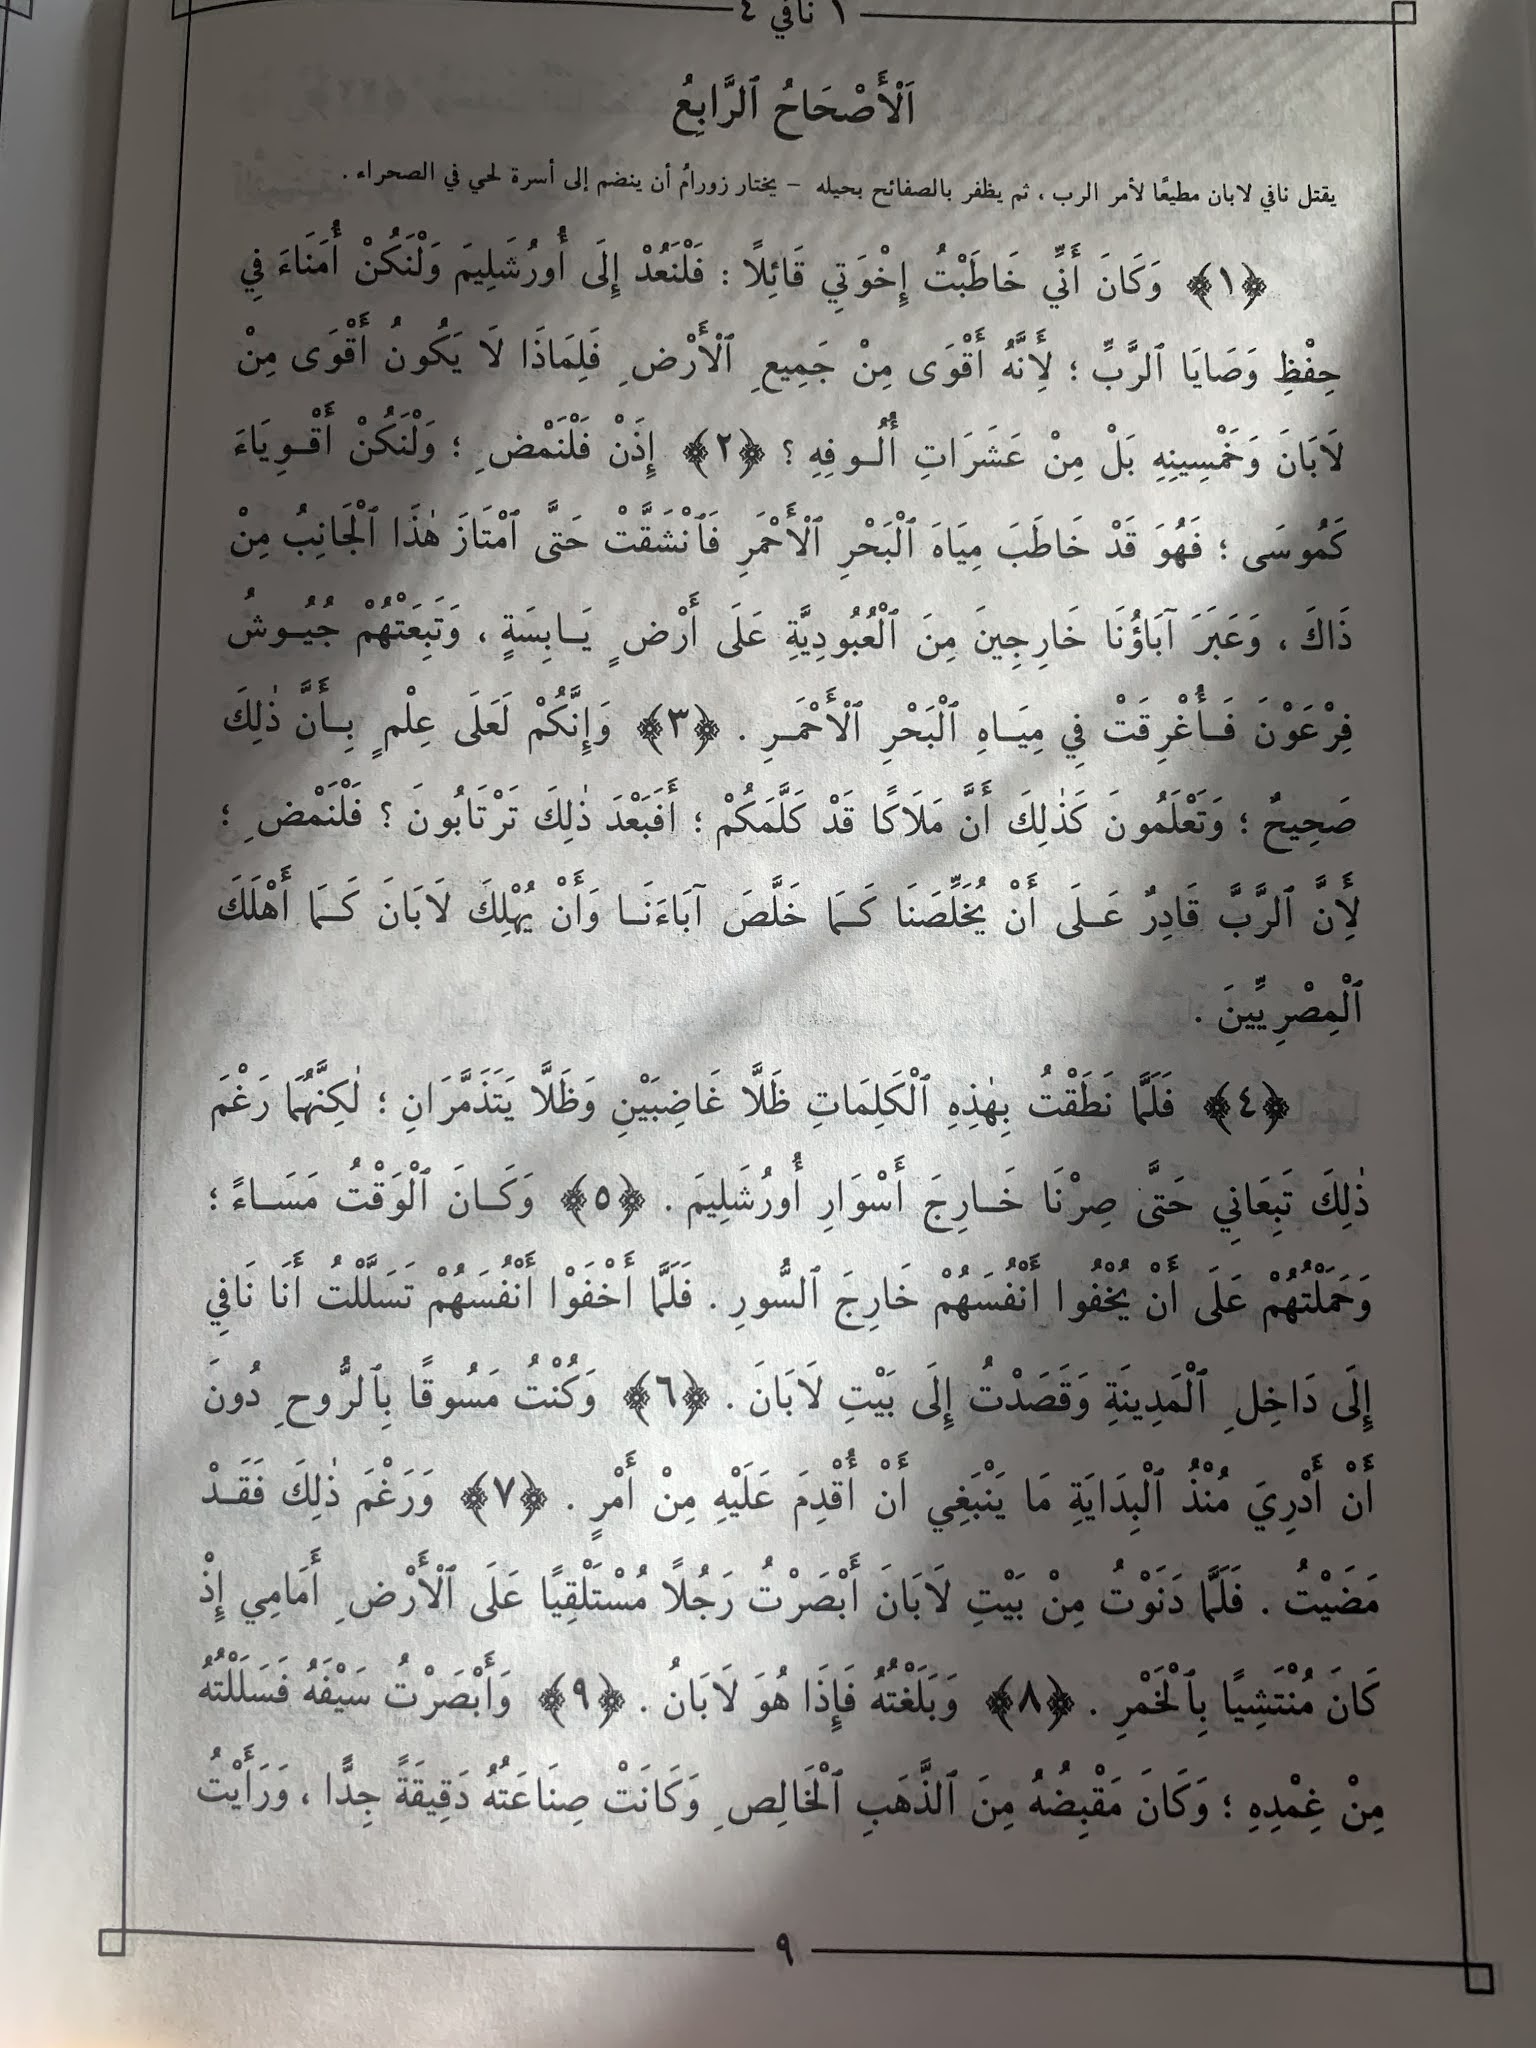 ١ نافي ٤
اَلْأَصْحَاحُ ٱلرَّابِعُ
يقتل نافي لابان مطيعًا لأمر الرب ، ثم يظفر بالصفائح بحيله – يختار زورامُ أن ينضم إلى أسرة لحي في الصحراء .
﴿١﴾ وَكَانَ أَنِّي خَاطَبْتُ إِخْوَتِي قَائِلًا : فَلْنَعُدْ إِلَى أُورُشَلِيمَ وَلْنَكُنْ أُمَنَاءَ فِي
حِفْظِ وَصَايَا ٱلرَّبِّ ؛ لِأَنَّهُ أَقْوَى مِنْ جَمِيعِ ٱلْأَرْضِ فَلِمَاذَا لَا يَكُونُ أَقْوَى مِنْ
لَابَانَ وَخَمْسِينِهِ بَلْ مِنْ عَشَرَاتِ أُلُوفِهِ ؟ ﴿٢﴾ إِذَنْ فَلْنَمْضِ ؛ وَلْنَكُنْ أَقْوِيَاءَ
كَمُوسَى ؛ فَهُوَ قَدْ خَاطَبَ مِيَاهَ ٱلْبَحْرِ ٱلْأَحْمَرِ فَٱنْشَقَّتْ حَتَّى ٱمْتَازَ هٰذَا ٱلْجَانِبُ مِنْ
ذَاكَ ، وَعَبَرَ آبَاؤُنَا خَارِجِينَ مِنَ ٱلْعُبُودِيَّةِ عَلَى أَرْضٍ يَابِسَةٍ ، وَتَبِعَتْهُمْ جُيُوشُ
فِرْعَوْنَ فَأُغْرِقَتْ فِي مِيَاهِ ٱلْبَحْرِ ٱلْأَحْمَرِ . ﴿٣﴾ وَإِنَّكُمْ لَعَلَى عِلْمٍ بِأَنَّ ذٰلِكَ
صَحِيحٌ ؛ وَتَعْلَمُونَ كَذٰلِكَ أَنَّ مَلَاكًا قَدْ كَلَّمَكُمْ ؛ أَفَبَعْدَ ذٰلِكَ تَرْتَابُونَ ؟ فَلْنَمْضِ ؛
لِأَنَّ ٱلرَّبَّ قَادِرٌ عَلَى أَنْ يُخَلِّصَنَا كَمَا خَلَّصَ آبَاءَنَا وَأَنْ يُهْلِكَ لَابَانَ كَمَا أَهْلَكَ
ٱلْمِصْرِيِّينَ .
﴿٤﴾ فَلَمَّا نَطَقْتُ بِهٰذِهِ ٱلْكَلِمَاتِ ظَلَّا غَاضِبَيْنِ وَظَلَّا يَتَذَمَّرَانِ ؛ لٰكِنَّهُمَا رَغْمَ
ذٰلِكَ تَبِعَانِي حَتَّى صِرْنَا خَارِجَ أَسْوَارِ أُورُشَلِيمَ . ﴿٥﴾ وَكَانَ ٱلْوَقْتُ مَسَاءً ؛
وَحَمَلْتُهُمْ عَلَى أَنْ يُخْفُوا أَنْفُسَهُمْ خَارِجَ ٱلسُّورِ . فَلَمَّا أَخْفَوْا أَنْفُسَهُمْ تَسَلَّلْتُ أَنَا نَافِي
إِلَى دَاخِلِ ٱلْمَدِينَةِ وَقَصَدْتُ إِلَى بَيْتِ لَابَانَ . ﴿٦﴾ وَكُنْتُ مَسُوقًا بِٱلرُّوحِ دُونَ
أَنْ أَدْرِيَ مُنْذُ ٱلْبِدَايَةِ مَا يَنْبَغِي أَنْ أُقْدِمَ عَلَيْهِ مِنْ أَمْرٍ . ﴿٧﴾ وَرَغْمَ ذٰلِكَ فَقَدْ
مَضَيْتُ . فَلَمَّا دَنَوْتُ مِنْ بَيْتِ لَابَانَ أَبْصَرْتُ رَجُلًا مُسْتَلْقِيًا عَلَى ٱلْأَرْضِ أَمَامِي إِذْ
كَانَ مُنْتَشِيًا بِٱلْخَمْرِ . ﴿٨﴾ وَبَلَغْتُهُ فَإِذَا هُوَ لَابَانُ . ﴿٩﴾ وَأَبْصَرْتُ سَيْفَهُ فَسَلَلْتُهُ
مِنْ غِمْدِهِ ؛ وَكَانَ مَقْبِضُهُ مِنَ ٱلذَّهَبِ ٱلْخَالِصِ وَكَانَتْ صِنَاعَتُهُ دَقِيقَةً جِدًّا ، وَرَأَيْتُ
٩